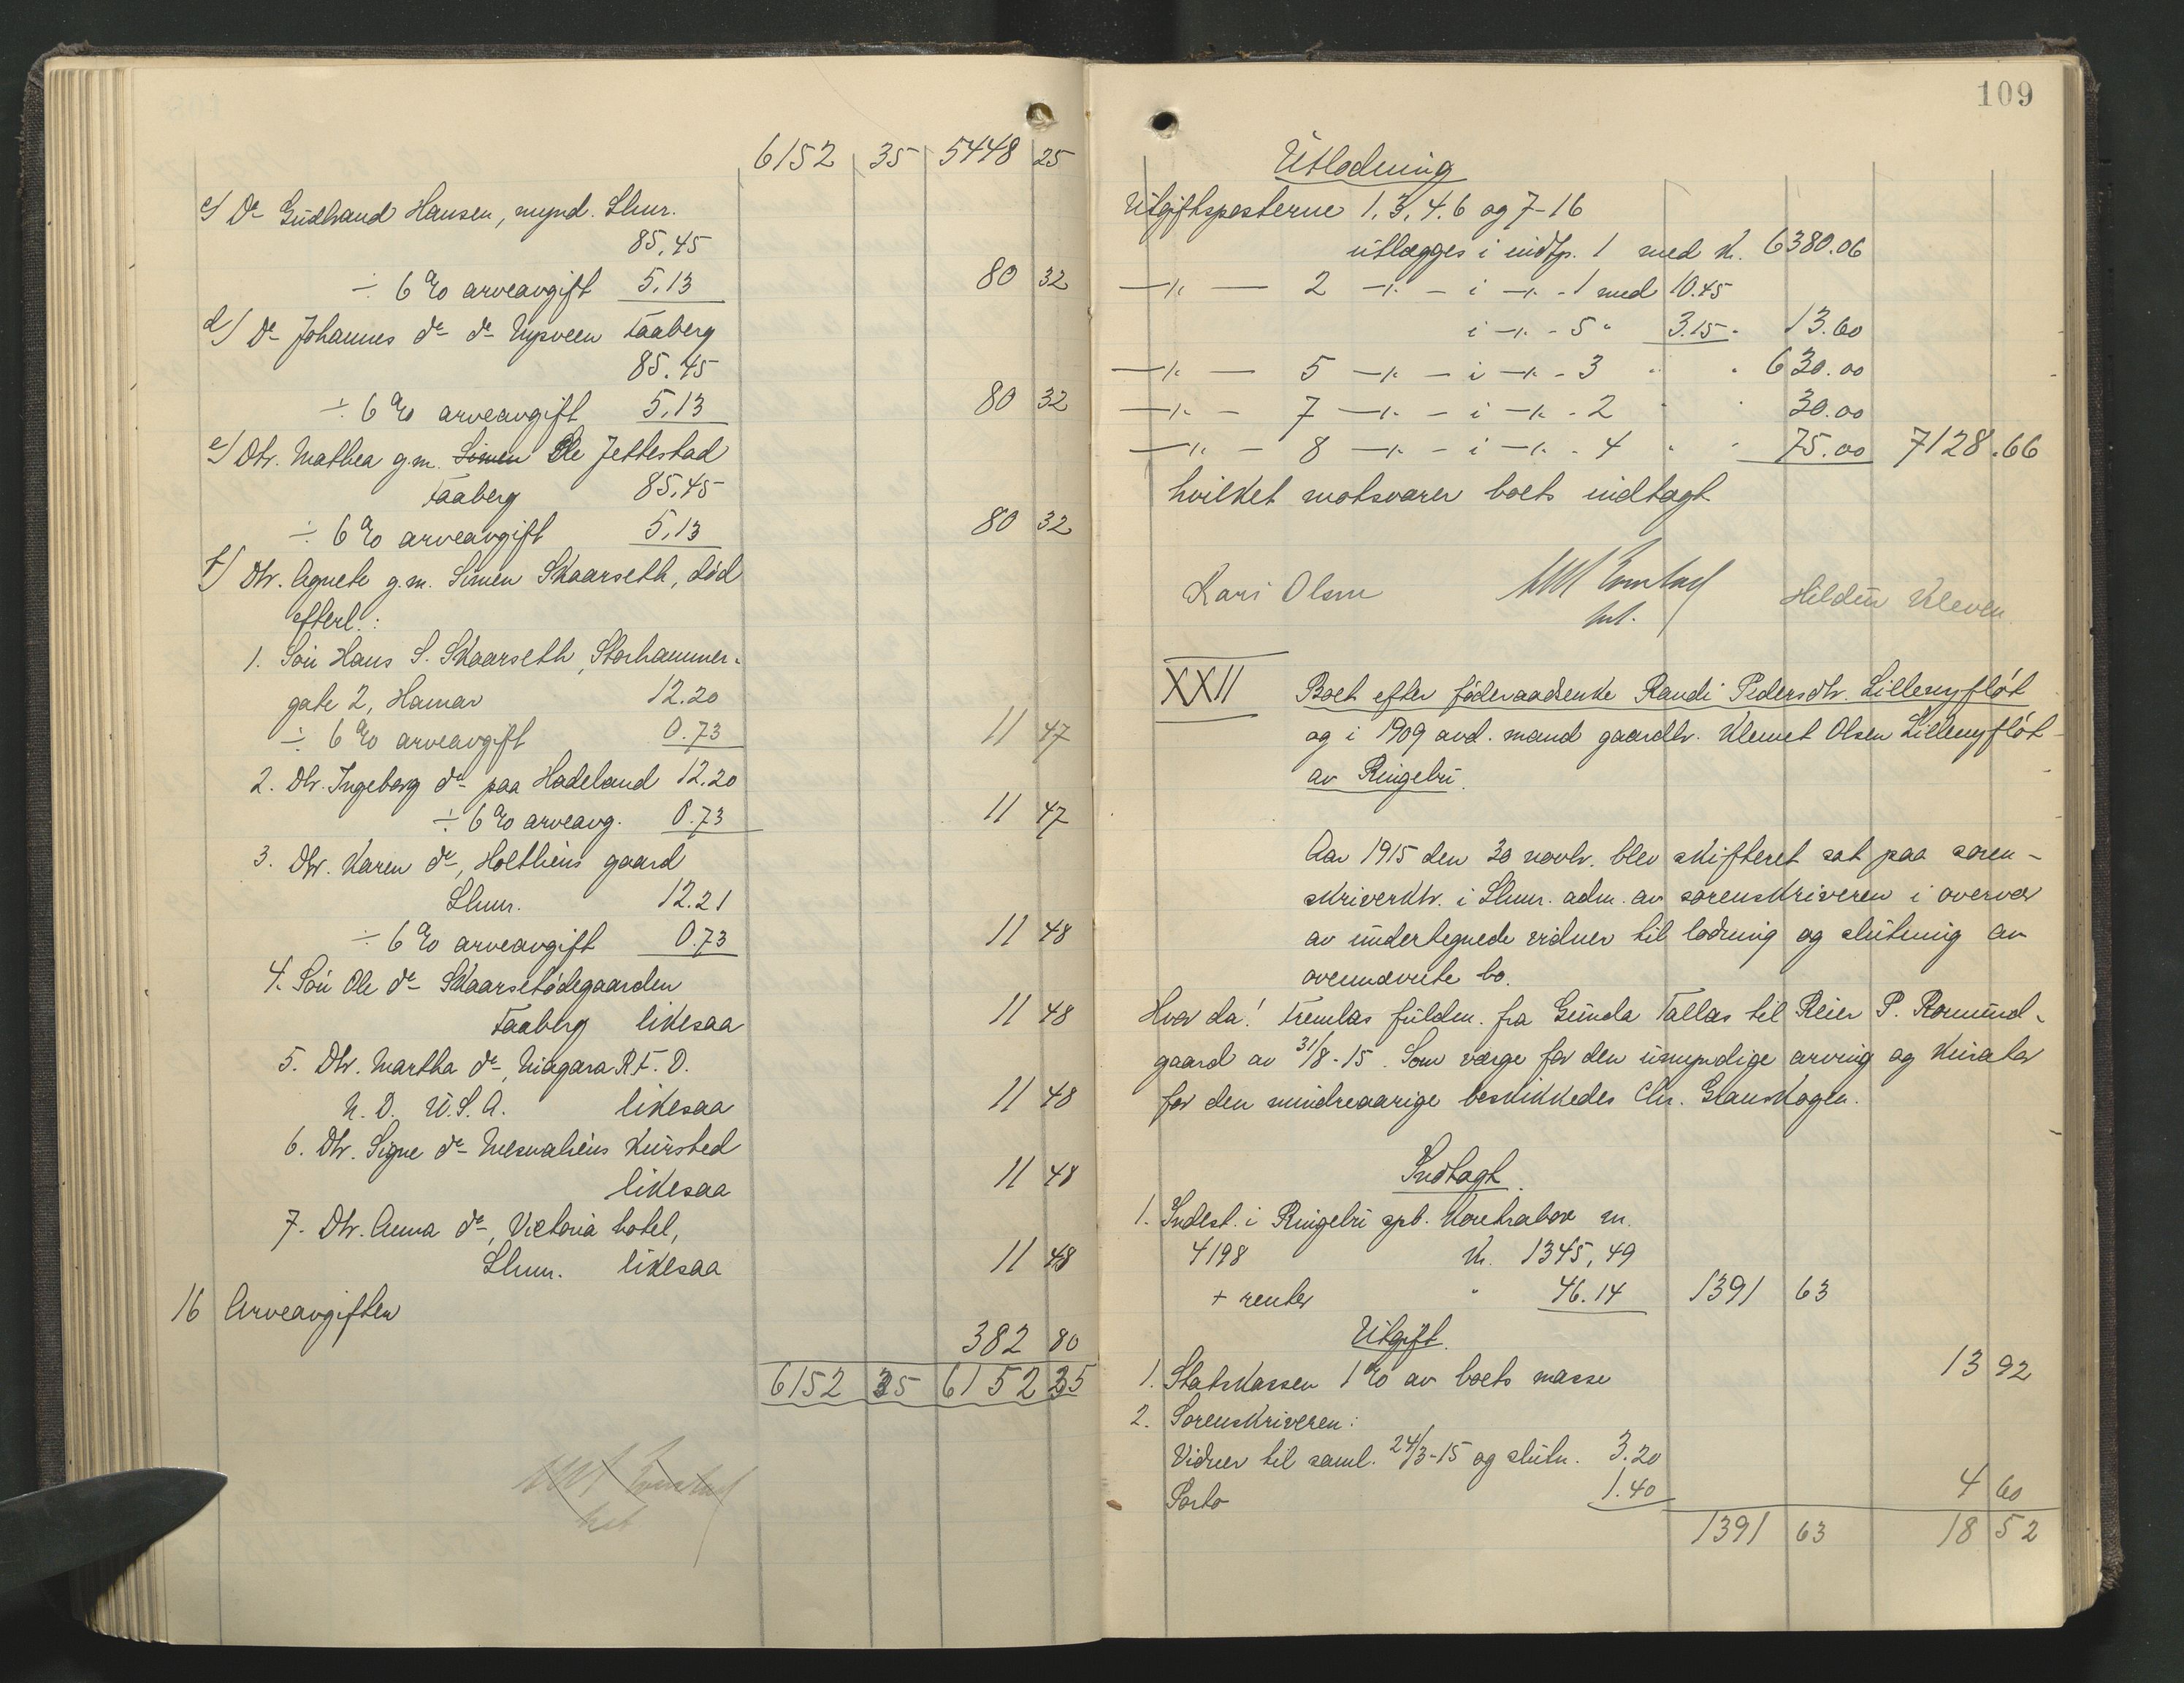 6152 35 5448 25
c/ Do Gudbrand Hansen, mynd. Lhmr.
85.45
÷ 6 % arveavgift 5.13 80 32
d/ Do Johannes do do Nysveen Faaberg
85.45
÷ 6 % arveavgift 5.13 80 32
e/ Dtr. Mathea g.m. Simen Ole Jettestad
Faaberg 85.45
÷ 6 % arveavgift 5.13 80 32
f/ Dtr. Agnete g.m. Simen Skaarseth, död
efterl.:
1. Sön Hans S. Skaarseth, Storhammer-
gate 2, Hamar 12.20
÷ 6 % arveavgift 0.73 11 47
2. Dtr. Ingeborg do paa Hadeland 12.20
÷ 6 % arveavg. 0.73 11 47
3. Dtr. Karen do, Holthens gaard
Lhmr. 12.21
÷ 6 % arveavgift 0.73 11 48
4. Sön Ole do Skaarsetödegaarden
Faaberg likesaa 11 48
5. Dtr. Martha do, Niagara R.F.D.
N. D. U.S.A. likesaa 11 48
6. Dtr. Signe do Mesnaliens Kursted
likesaa 11 48
7. Dtr. Anna do, Victoria hotel,
Lhmr. likesaa 11 48
16 Arveavgiften
382 80
6152 35 6152 35
109
Utlodning
Utgiftsposterne 1, 3, 4. 6 og 7-16
utlægges i indtp. 1 med kr. 6380.06
—"— — 2 —"— - i —"— - 1 med 10.45
i —"— - 5 " 3.15 " 13.60
—"— — 5 —"— - i —"— - 3 " " 630.00
—"— - 7 —"— - i —"— - 2 " " 30.00
—"— - 8 —"— - i —"— - 4 " " 75.00 7128.66
hvilket motsvarer boets indtægt
Kari Olsen Hildur Kleven
XXII Boet efter föderaadsenke Randi Pedersdtr. Lillenyflöt
og i 1909 avd. mand gaardbr. Klemet Olsen Lillenyflöt
av Ringebu.
Aar 1915 den 30 novbr. blev skifteret sat paa soren-
skriverktr. i Lhmr. adm. av sorenskriveren i overvær
av undertegnede vidner til lodning og slutning av
ovennævnte bo.
Hvor da! Fremlas fuldm. fra Gunda Tallas til Reier P. Romund-
gaard av 31/8-15. Som værge for den umyndige arving og kurator
for den mindreaarige beskikkedes Chr. Granskogen.
Indtægt.
1. Indest. i Ringebu spb. kontrabok nr.
4198 kr. 1345,49
+ renter " 46.14 1391 63
Utgift.
1. Statskassen 1 % av boets masse 13 92
2. Sorenskriveren:
Vidner til saml. 24/3-15 og slutn. 3.20
Porto 1.40 4 60
1391 63 18 52